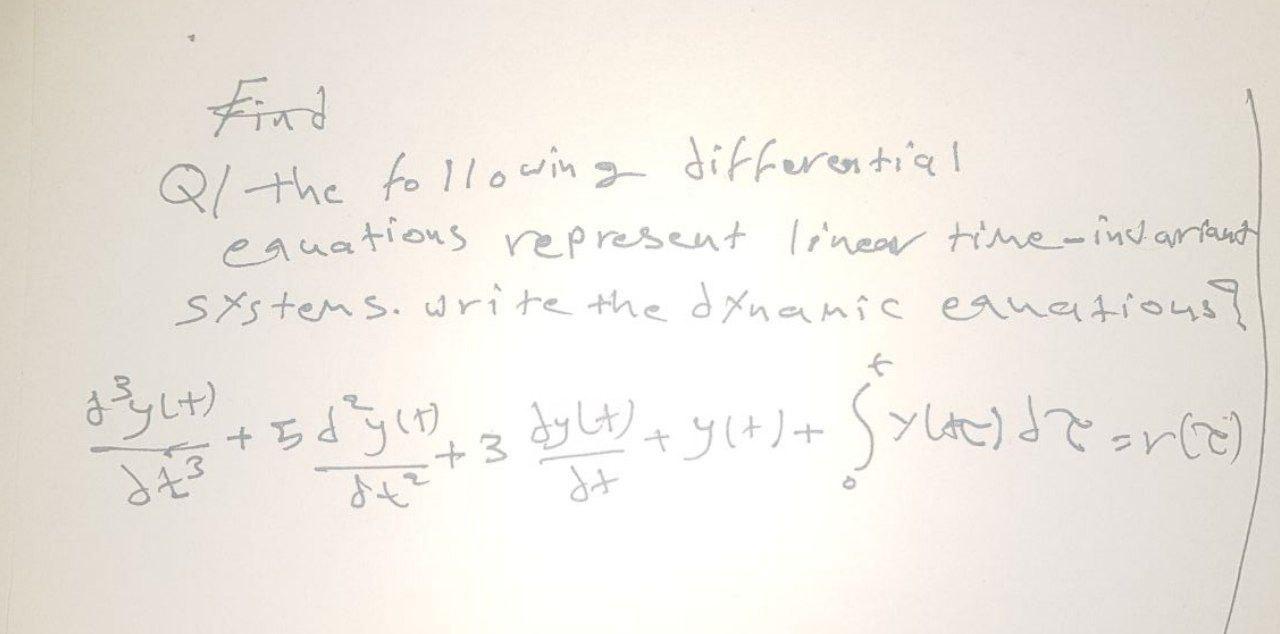 Find
Q/ the following differential
equations represent linear time-invariant
systems. write the dynamic equations?
d³y(t)/dt³ + 5 d²y(t)/dt² + 3 dy(t)/dt + y(t) + ∫₀ᵗ y(τ) dτ = r(τ)